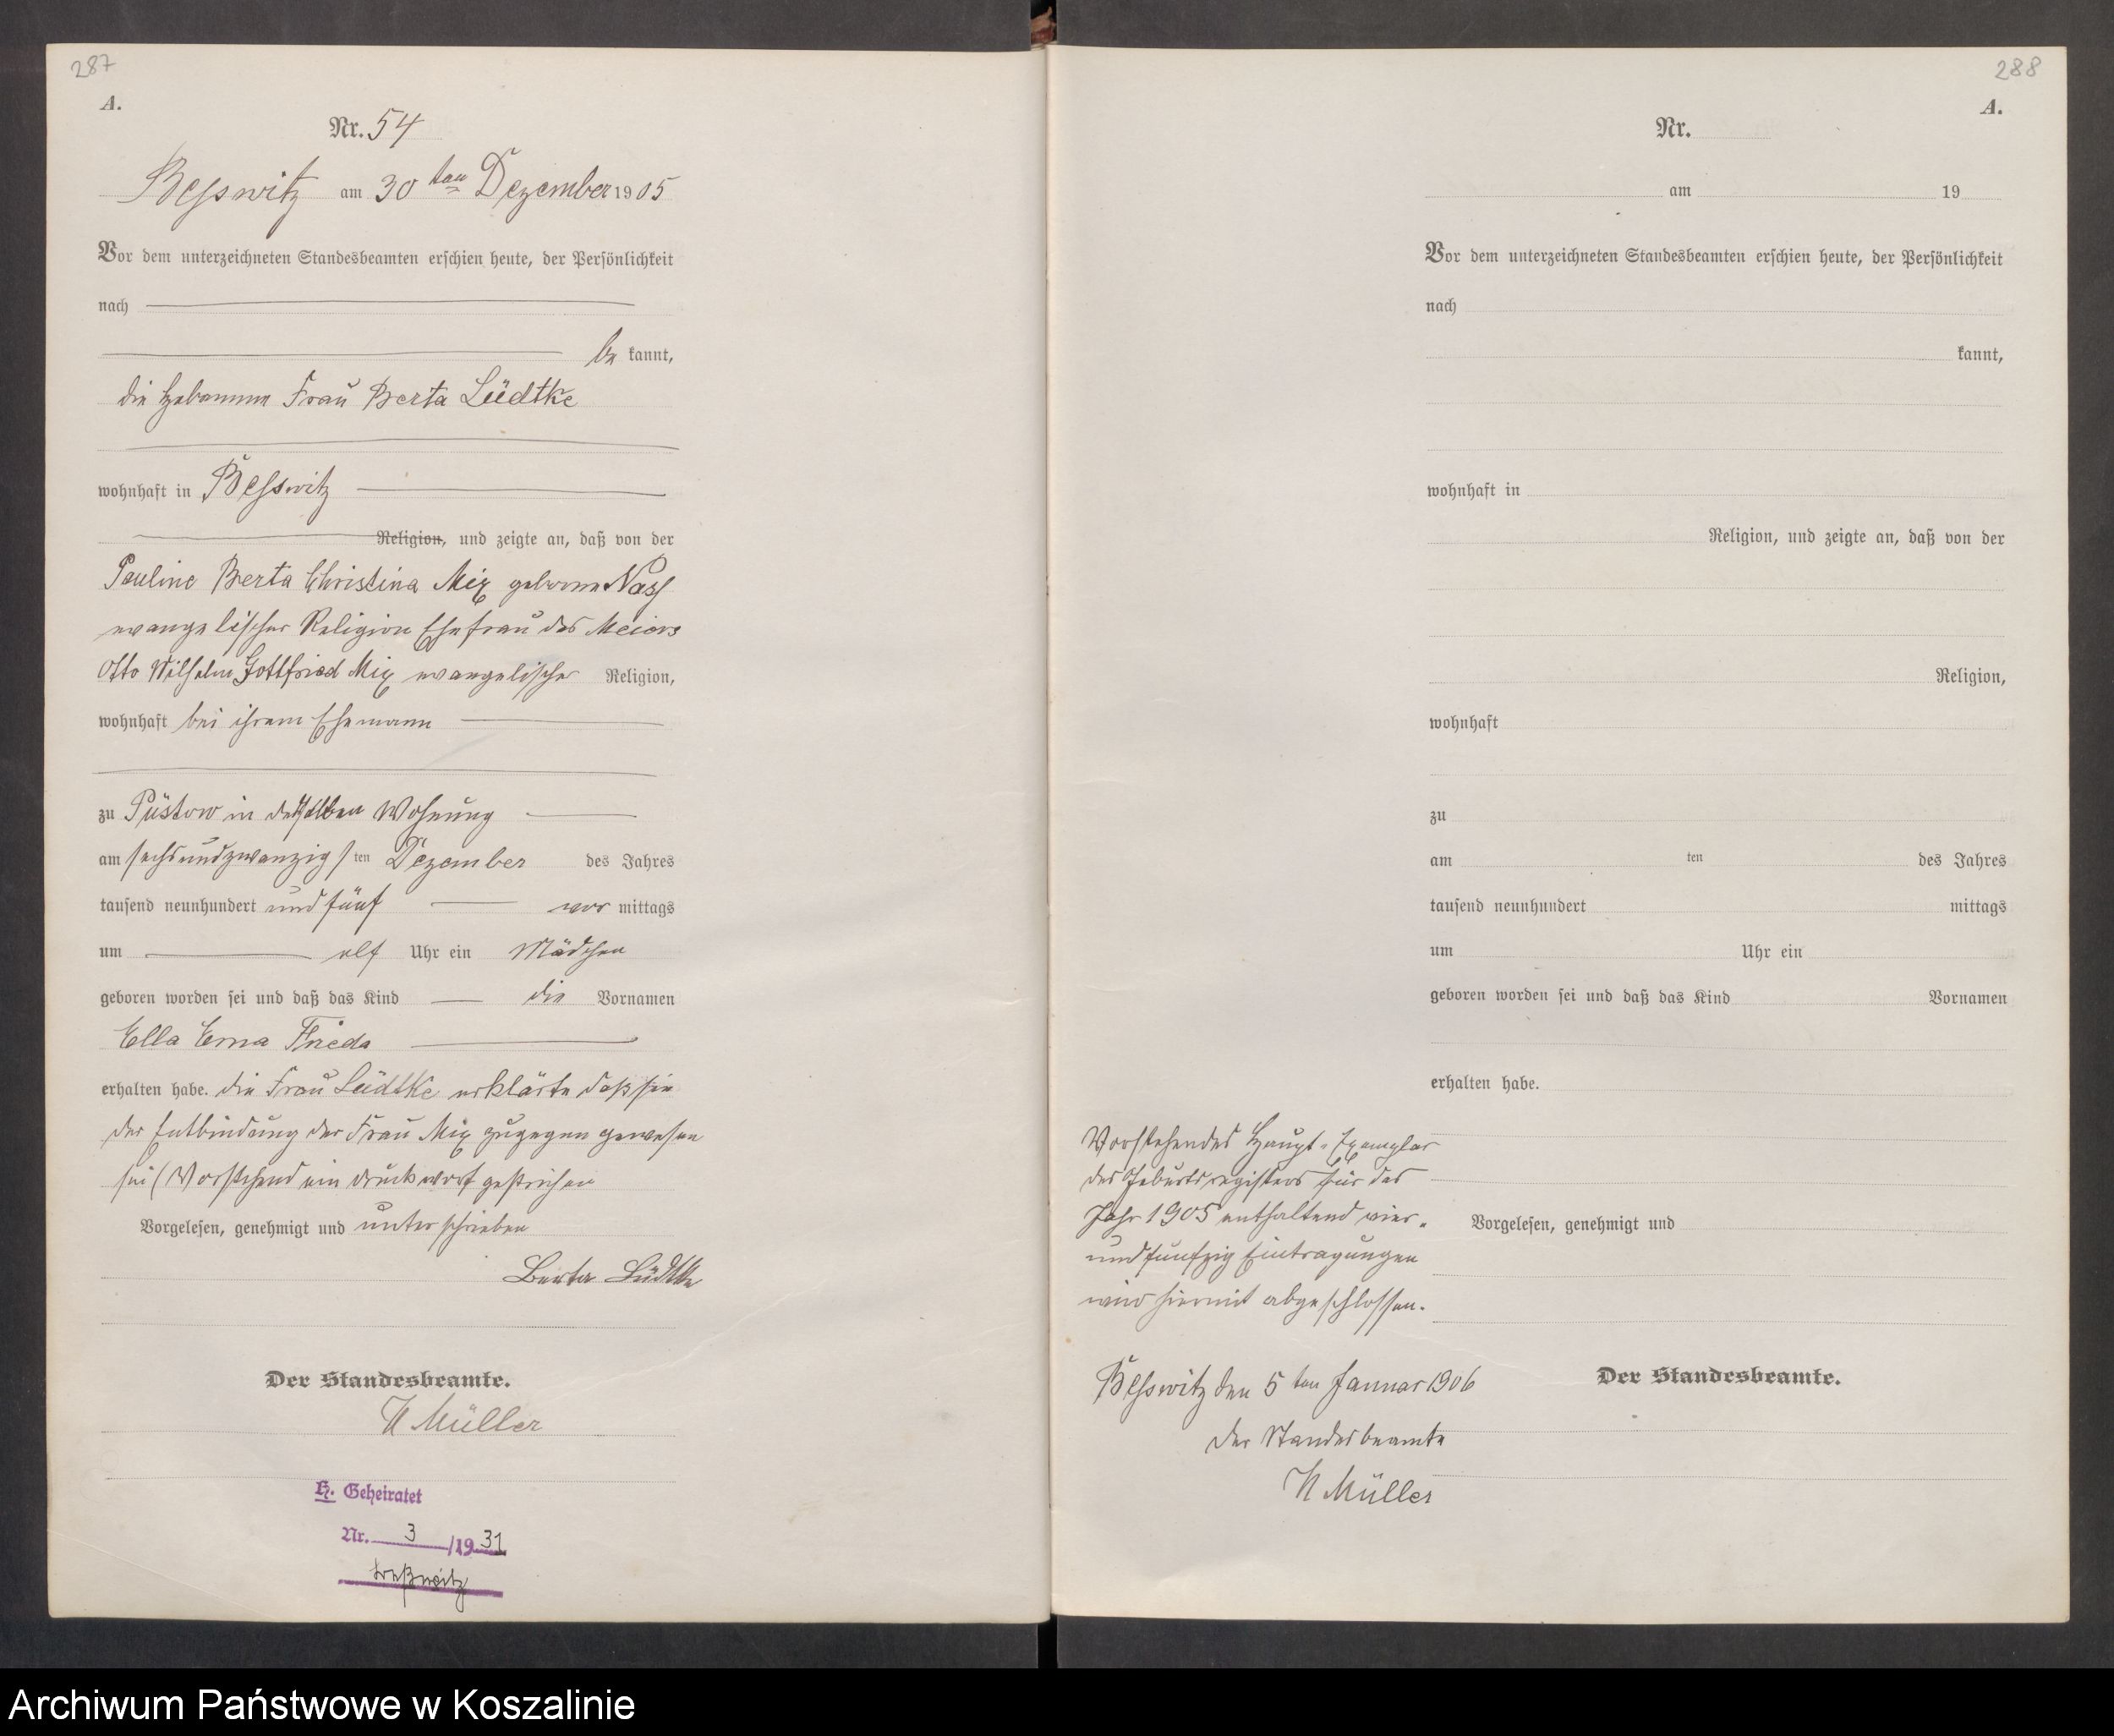 287
A.
Nr. 54
Besswitz am 30ten Dezember 1905
Vor dem unterzeichneten Standesbeamten erschien heute, der Persönlichkeit
nach
be kannt,
die Hebamme Frau Berta Lüdtke
wohnhaft in Besswitz
Religion, und zeigte an, daß von der
Pauline Berta Christina Mix geborne Nass
evangelischer Religion Ehefrau des Meiers
Otto Wilhelm Gottfried Mix evangelischer Religion,
wohnhaft bei ihrem Ehemann
zu Püstow in derselben Wohnung
am sechsundzwanzigsten Dezember des Jahres
tausend neunhundert und fünf vor mittags
um elf Uhr ein Mädchen
geboren worden sei und daß das Kind die Vornamen
Ella Erna Frieda
erhalten habe. die Frau Lüdtke erklärte daß sie
der Entbindung der Frau Mix zugegen gewesen
sei (Vorstehend ein Druckwort gestrichen
Vorgelesen, genehmigt und unterschrieben
Berta Lüdtke
Der Standesbeamte.
Müller
H. Geheiratet
Nr. 3 /1931
288
A.
Nr.
am 19
Vor dem unterzeichneten Standesbeamten erschien heute, der Persönlichkeit
nach
kannt,
wohnhaft in
Religion, und zeigte an, daß von der
Religion,
wohnhaft
zu
am ten des Jahres
tausend neunhundert mittags
um Uhr ein
geboren worden sei und daß das Kind Vornamen
erhalten habe.
Vorstehendes Haupt-Exemplar
des Geburtsregisters für das
Jahr 1905 enthaltend vier-
undfünfzig Eintragungen
wird hiermit abgeschlossen.
Vorgelesen, genehmigt und
Besswitz den 5ten Januar 1906
Der Standesbeamte
Müller
Der Standesbeamte.
Archiwum Państwowe w Koszalinie